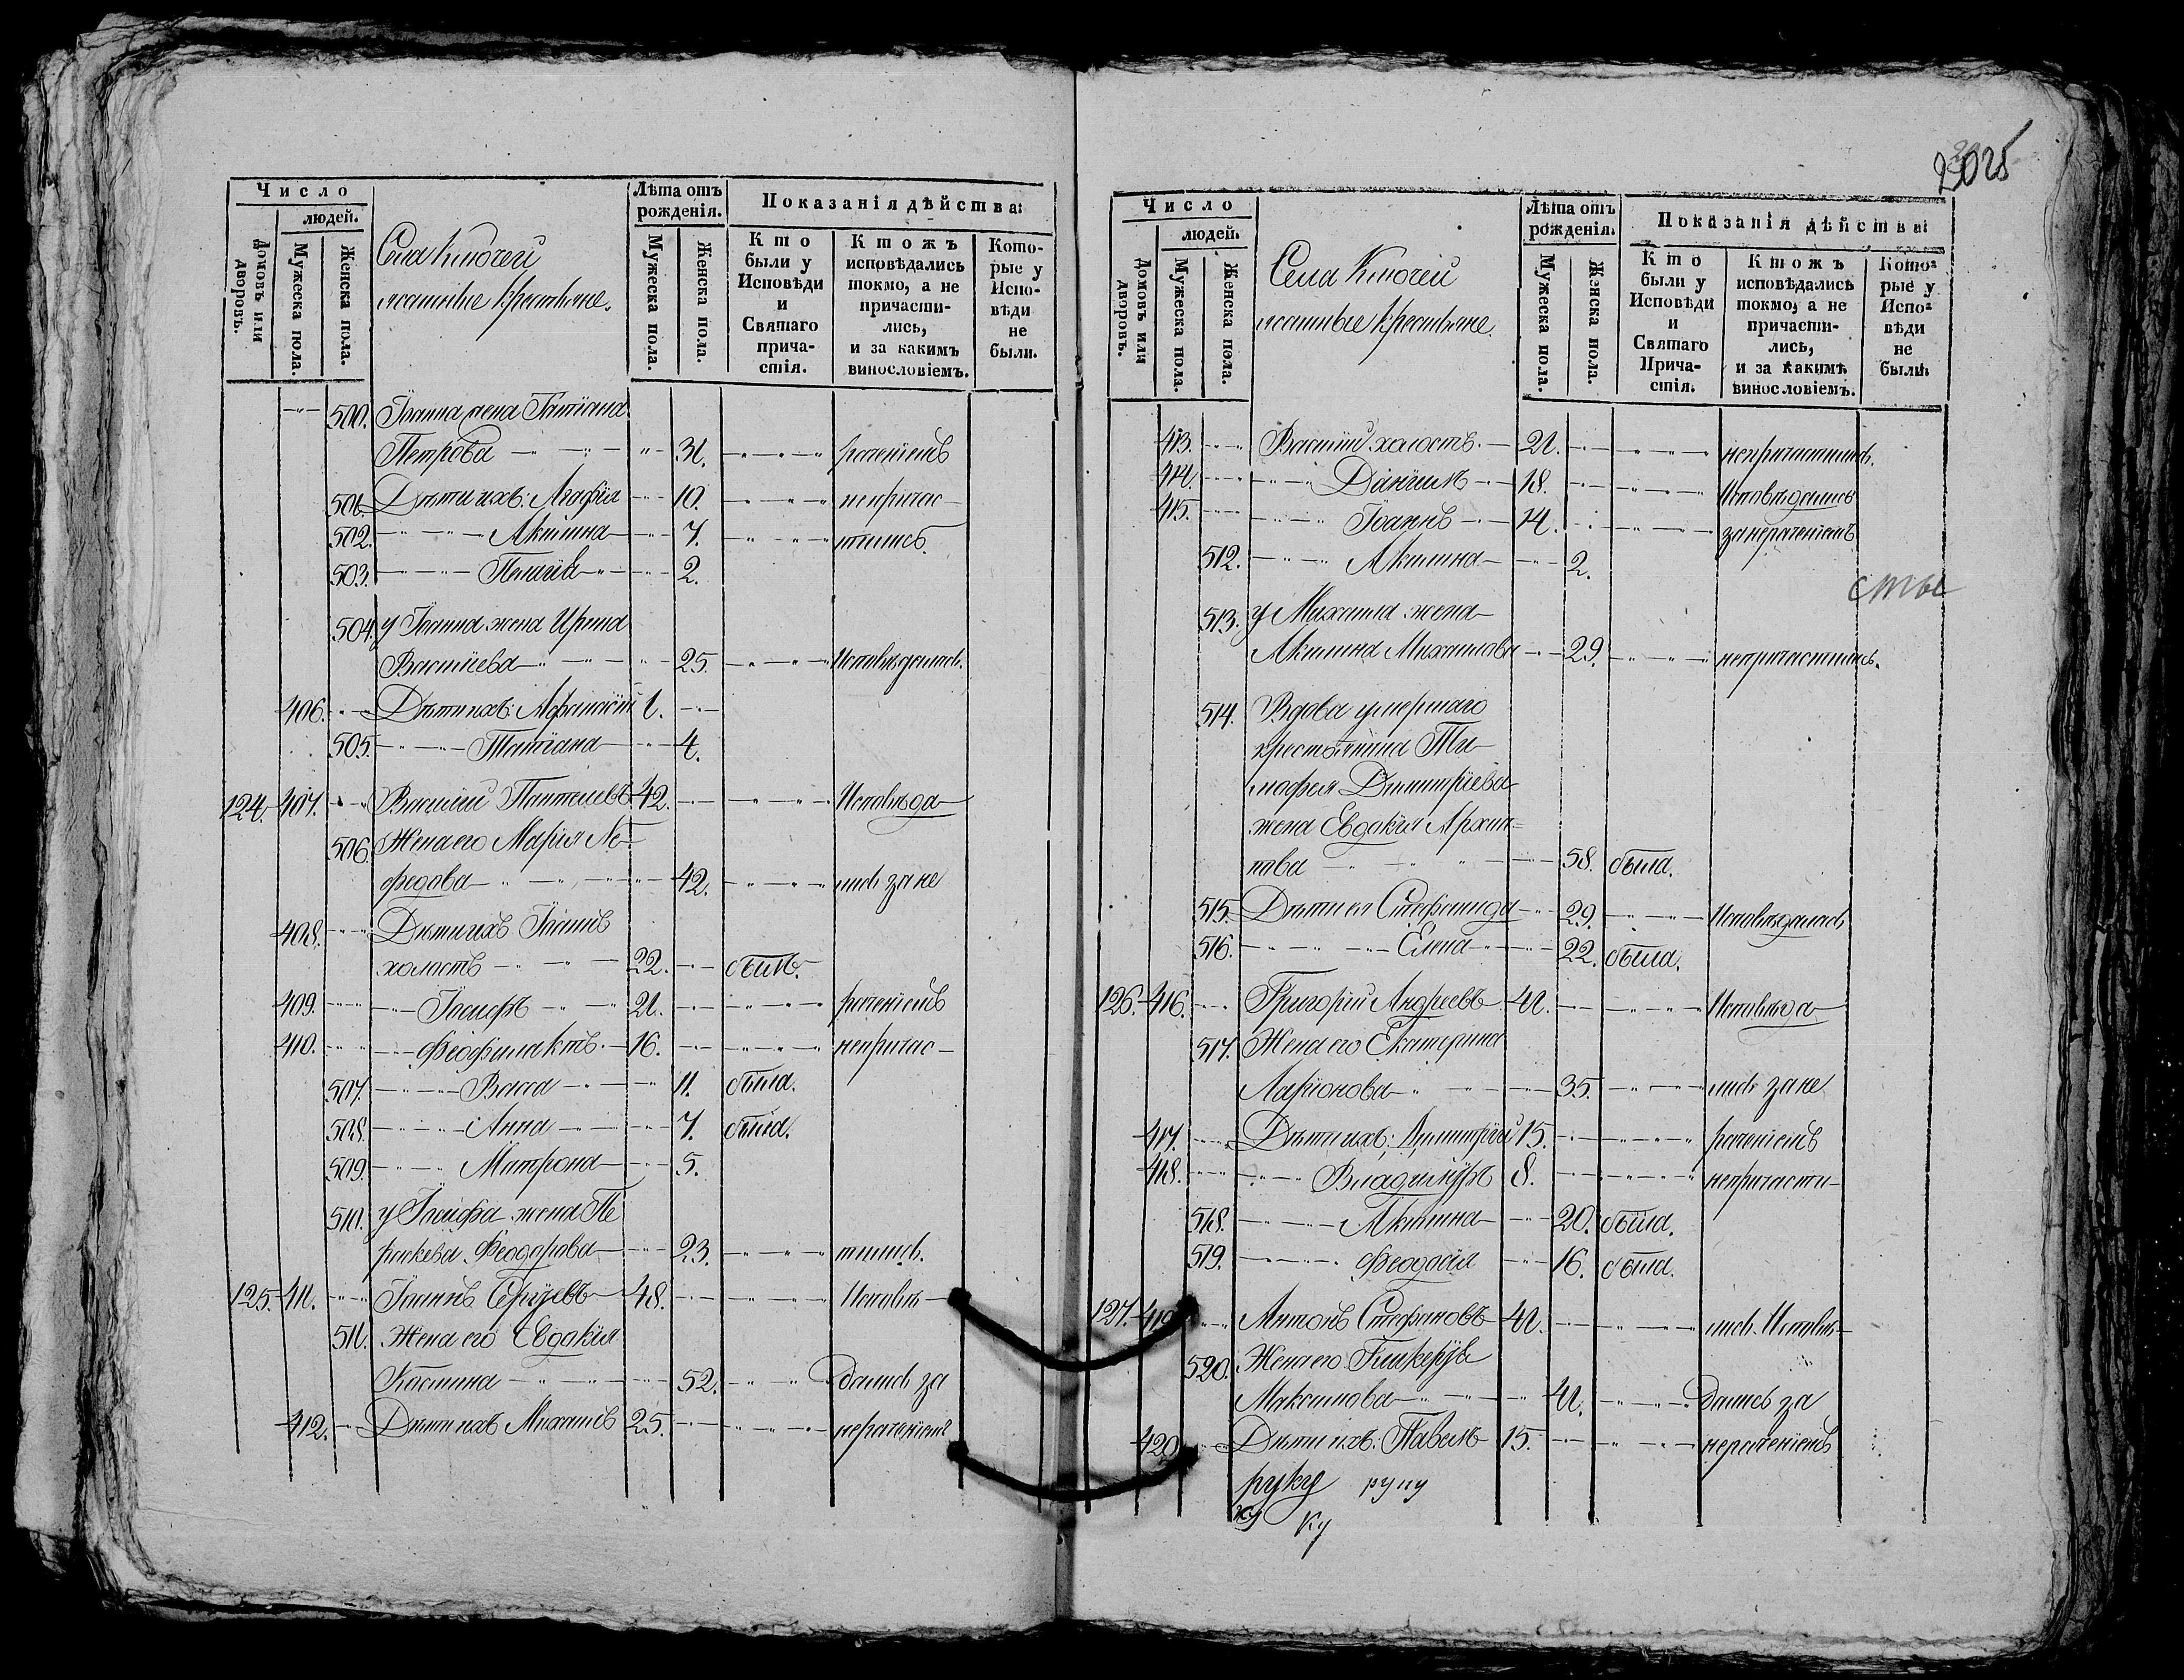 Число
людей.
Домовъ или дворовъ.
Мужеска пола.
Женска пола.
Села Ключей
ясашные крестьяне.
Лѣта отъ рожденія.
Мужеска пола.
Женска пола.
Показанія дѣйства:
Кто были у Исповѣди и Святаго причастія.
Ктожъ исповѣдались токмо, а не причастились, и за какимъ винословіемъ.
Которые у Исповѣди не были.
500. Іоанна жена Татіана
Петрова 31. рачениемъ
501. Дѣти ихъ: Агафія 10. непричас-
502. Акилина 7. тились.
503. Пелагія 2.
504. у Іоанна жена Ирина
Василіева 25. Исповѣдались.
406. Дѣти ихъ: Афанасій 1.
505. Татіана 4.
124. 407. Василій Пантелеевъ 42. Исповѣда-
506. Жена его Марія Не-
федова 42. лись за не
408. Дѣти ихъ Іоаннъ
холостъ 22. былъ.
409. Іосифъ 21. раченіемъ
410. Феофилактъ 16. непричас-
507. Васса 11. была.
508. Анна 7. была.
509. Матрона 5.
510. у Іосифа жена Па
раскева Феодорова 23. тились.
125. 411. Іоаннъ Сергѣевъ 48. Исповѣ-
511. Жена его Евдокія
52. дались за
412. Дѣти ихъ Михаилъ 25. нераченіемъ
Число
людей.
Домовъ или дворовъ.
Мужеска пола.
Женска пола.
Села Ключей
ясашные крестьяне.
Лѣта отъ рожденія.
Мужеска пола.
Женска пола.
Показанія дѣйства:
Кто были у Исповѣди и Святаго Причастія.
Ктожъ исповѣдались токмо, а не причастились, и за какимъ винословіемъ.
Которые у Исповѣди не были.
413. Василій холостъ. 21. непричастились.
414. Даніилъ 18. Исповѣдались
415. Іоаннъ 14. за нераченіемъ
512. Акилина 2.
сты
513. у Михаила жена
Акилина Михаилова 29. непричастились.
514. Вдова умершаго
крестьянина Ти-
мофея Димитріева
жена Евдокія Архип-
пова 58. была.
515. Дѣти ея Стефанида 29. Исповѣдалась
516. Елена 22. была.
126. 416. Григорій Андреевъ 41. Исповѣда-
517. Жена его Екатерина
Ларіонова 35. лись за не
417. Дѣти ихъ: Димитрій 15. раченіемъ
418. Владиміръ 8. непричасти-
518. Акилина 20. была.
519. Феодосія 16. была.
127. 419. Антонъ Стефановъ 41. лись. Исповѣ-
520. Жена его Гликерія
Максимова 41. дались за
420. Дѣти ихъ: Павелъ 15. нераченіемъ
руку руку
ку